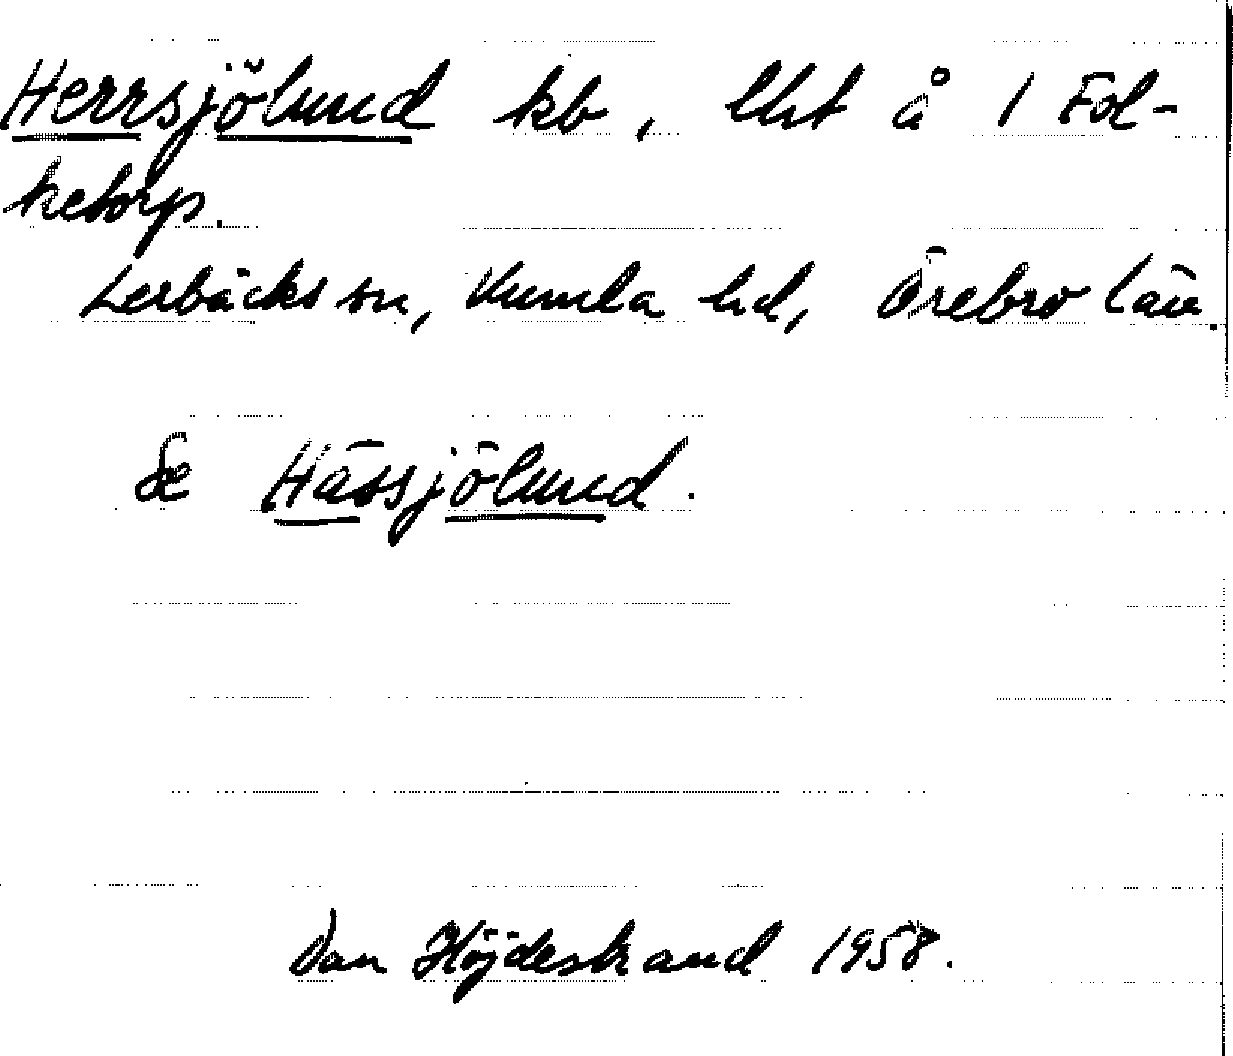 Herrsjölund kb, lht å 1 Fol-
ketorp.
Lerbäcks sn, Kumla hd, Örebro län.
Se Hässjölund.
Dan Höjdestrand 1958.